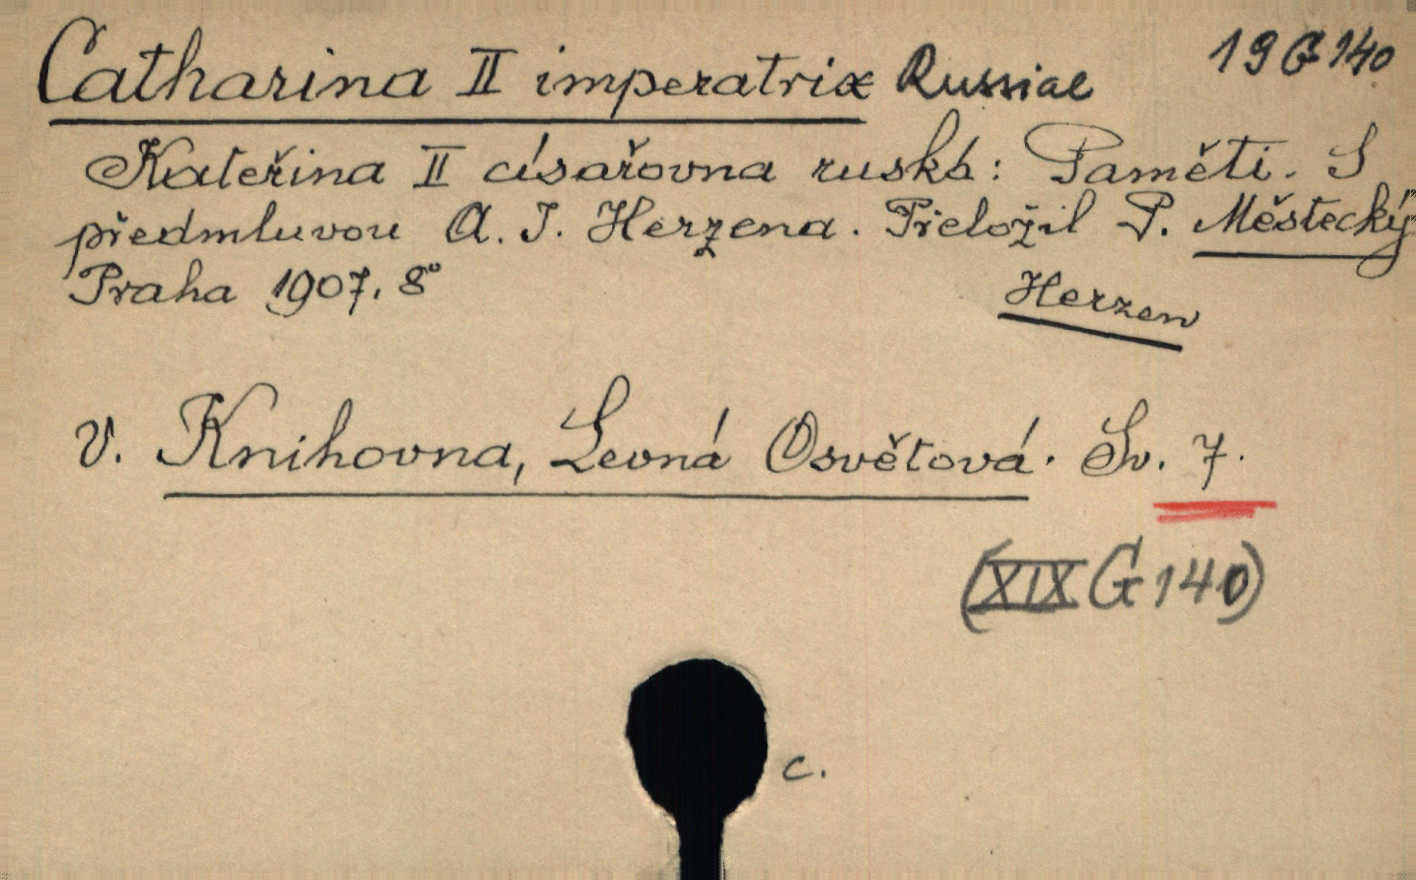 19 G 140
Catharina II imperatrix Russiae
Kateřina II císařovna ruská: Paměti. S
předmluvou A. I. Herzena. Přeložil P. Městecký
Praha 1907. 8°
Herzen
V. Knihovna, Levná Osvětová. Sv. 7.
(XIX G 140)
c.